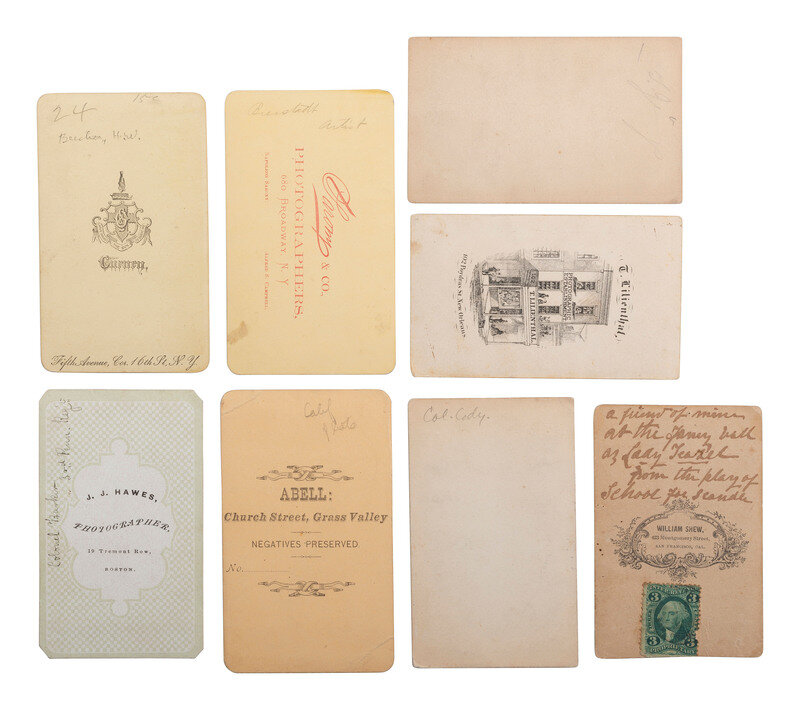 24
Gurney,
Fifth Avenue, Cor. 16th St, N. Y.
Bierstadt
Artist
Sarony & Co.
PHOTOGRAPHERS.
680 BROADWAY N. Y.
NAPOLEON SARONY
ALFRED S. CAMPBELL
T. Lilienthal,
PHOTOGRAPHIC
T. LILIENTHAL
102 Poydras St. New Orleans.
Colonel
J. J. HAWES,
PHOTOGRAPHER,
19 Tremont Row,
BOSTON.
Calif
ABELL:
Church Street, Grass Valley
NEGATIVES PRESERVED
No.
Col. Cody.
a friend of mine
at the fancy ball
as Lady Teazel
from the play of
School for Scandle
WILLIAM SHEW,
423 Montgomery Street,
SAN FRANCISCO, CAL.
3 3
PROPRIETARY